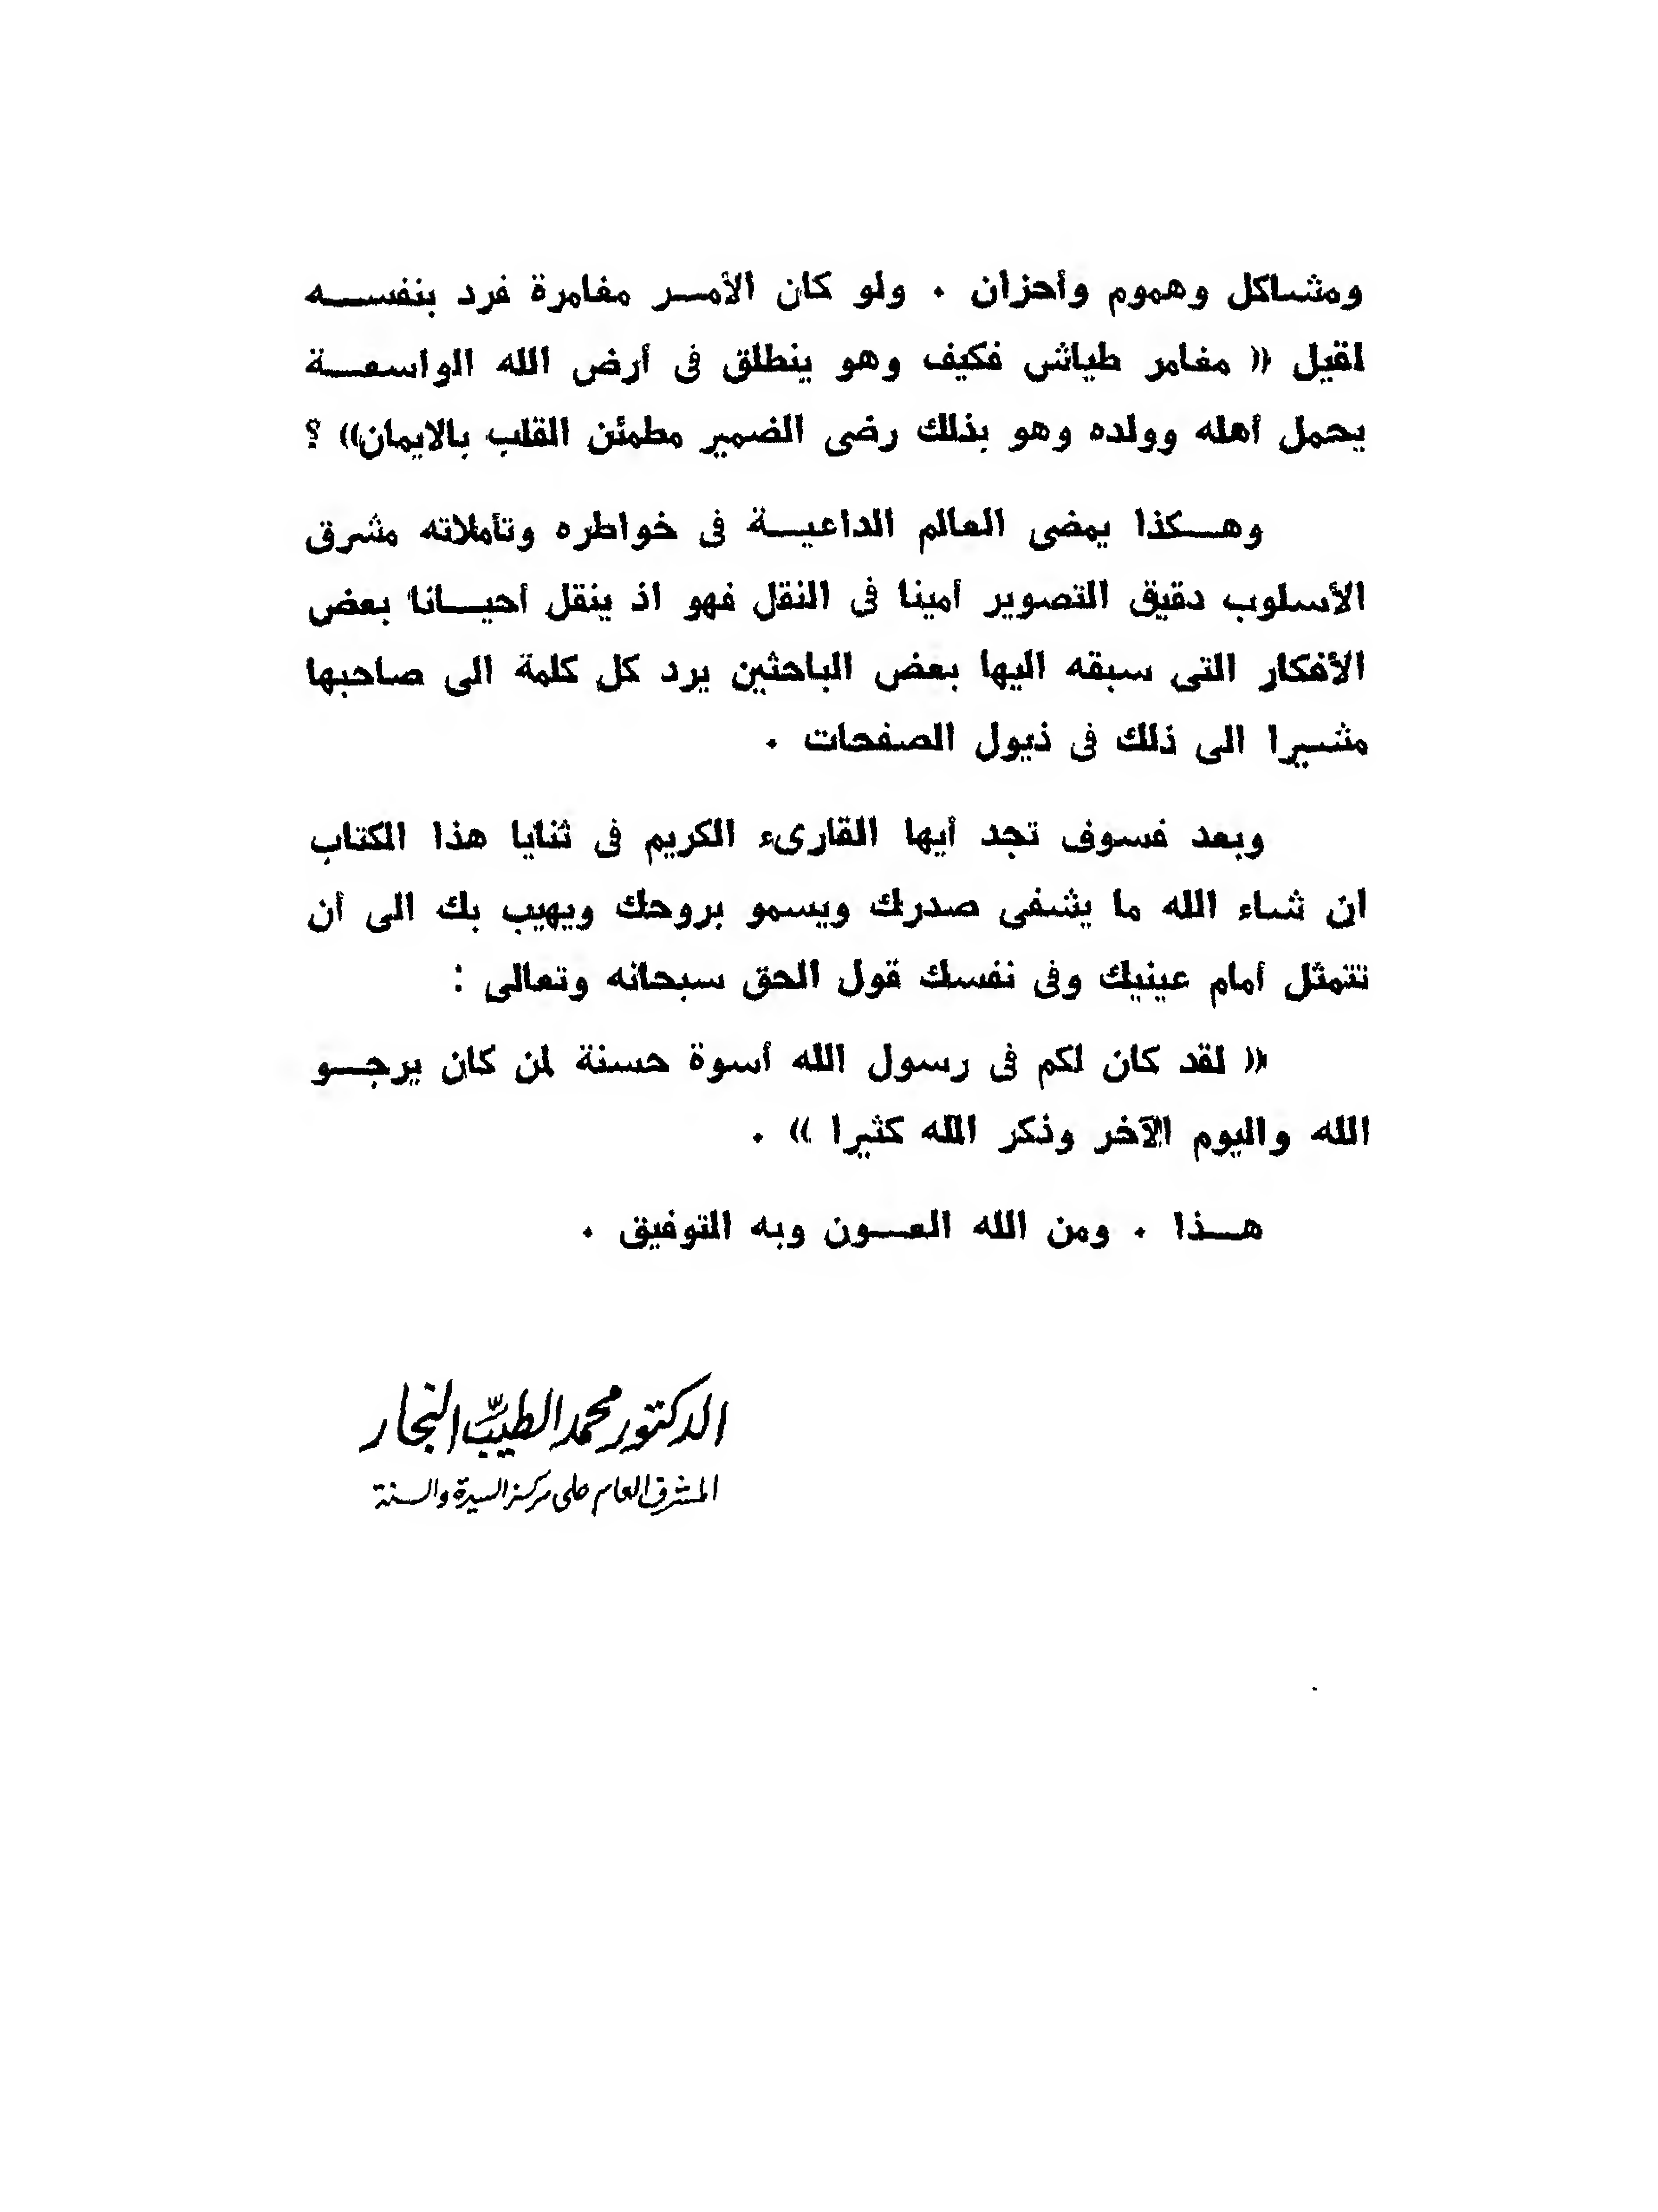 ومشاكل وهموم وأحزان . ولو كان الأمر مغامرة فرد بنفسه
لقيل « مغامر طياش فكيف وهو ينطلق فى أرض الله الواسعة
يحمل أهله وولده وهو بذلك رضى الضمير مطمئن القلب بالايمان» ؟
وهكذا يمضى العالم الداعية فى خواطره وتأملاته مشرق
الأسلوب دقيق التصوير أمينا فى النقل فهو اذ ينقل أحيانا بعض
الأفكار التى سبقه اليها بعض الباحثين يرد كل كلمة الى صاحبها
مشيرا الى ذلك فى ذيول الصفحات .
وبعد فسوف تجد أيها القارىء الكريم فى ثنايا هذا الكتاب
ان شاء الله ما يشفى صدرك ويسمو بروحك ويهيب بك الى أن
تتمثل أمام عينيك وفى نفسك قول الحق سبحانه وتعالى :
« لقد كان لكم فى رسول الله أسوة حسنة لمن كان يرجو
الله واليوم الآخر وذكر الله كثيرا » .
هذا . ومن الله العون وبه التوفيق .
الدكتور محمد الطيِّب النجار
المشرف العام على مركز السيرة والسنة